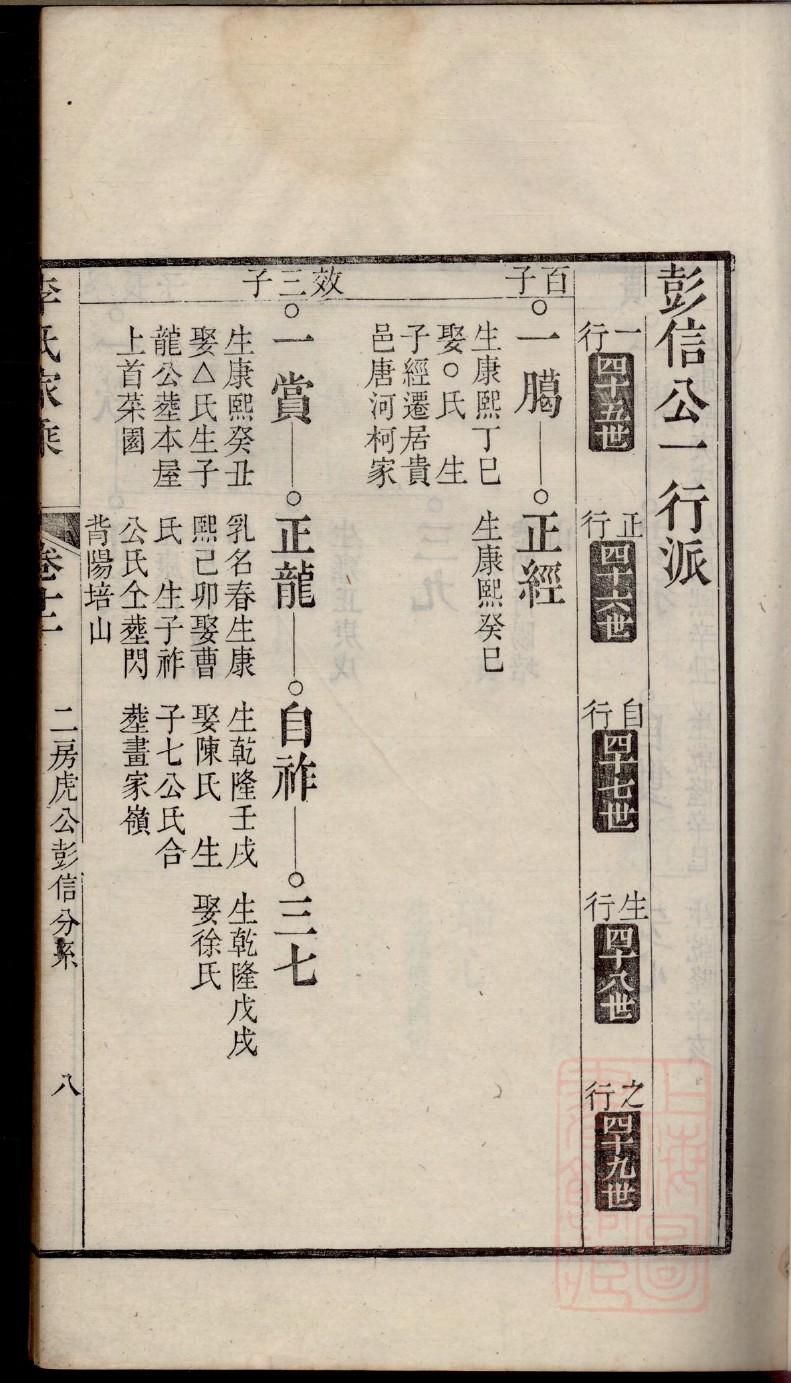 彭信公一行派
一行 四十五世
正行 四十六世
自行 四十七世
生行 四十八世
之行 四十九世
百子
一臈
生康熙丁巳
娶○氏 生
子經遷居貴
邑唐河柯家
正經
生康熙癸巳
效三子
一賞
生康熙癸丑
娶△氏生子
龍公塟本屋
上首菜園
正龍
乳名春生康
熙己卯娶曹
氏 生子祚
公氏仝塟閃
背陽培山
自祚
生乾隆壬戌
娶陳氏 生
子七公氏合
塟畫家嶺
三七
生乾隆戊戌
娶徐氏
李氏家乘
卷十二
二房虎公彭信分系
八